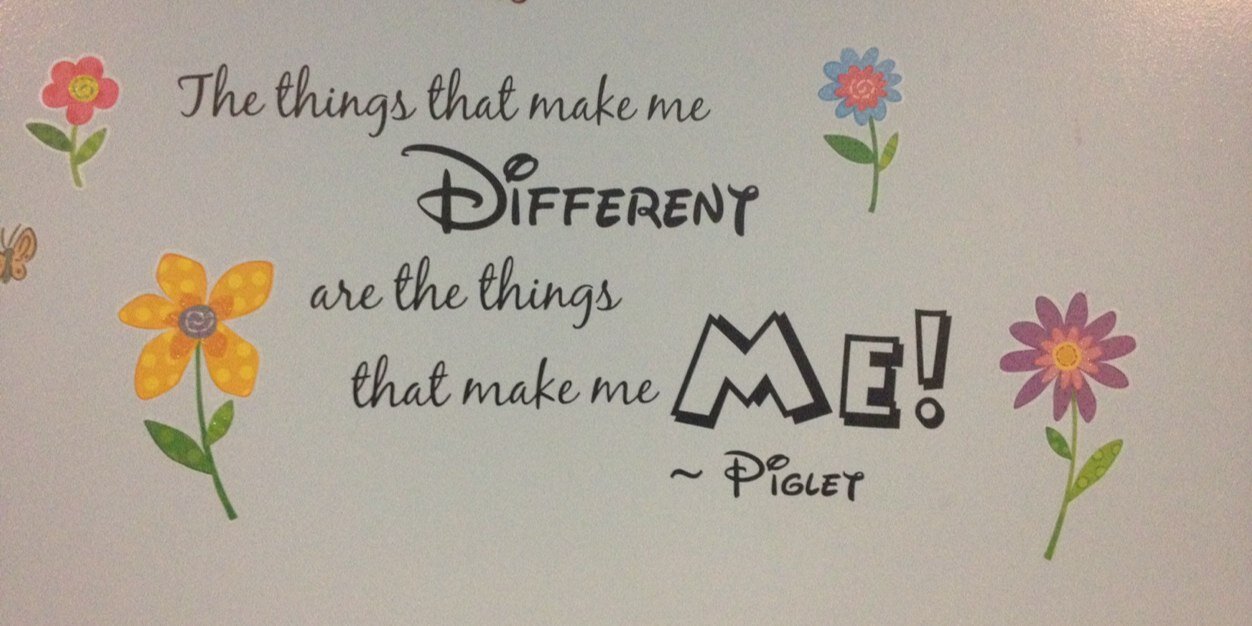 The things that make me
DIFFERENT
are the things
that make me ME!
~ PIGLET